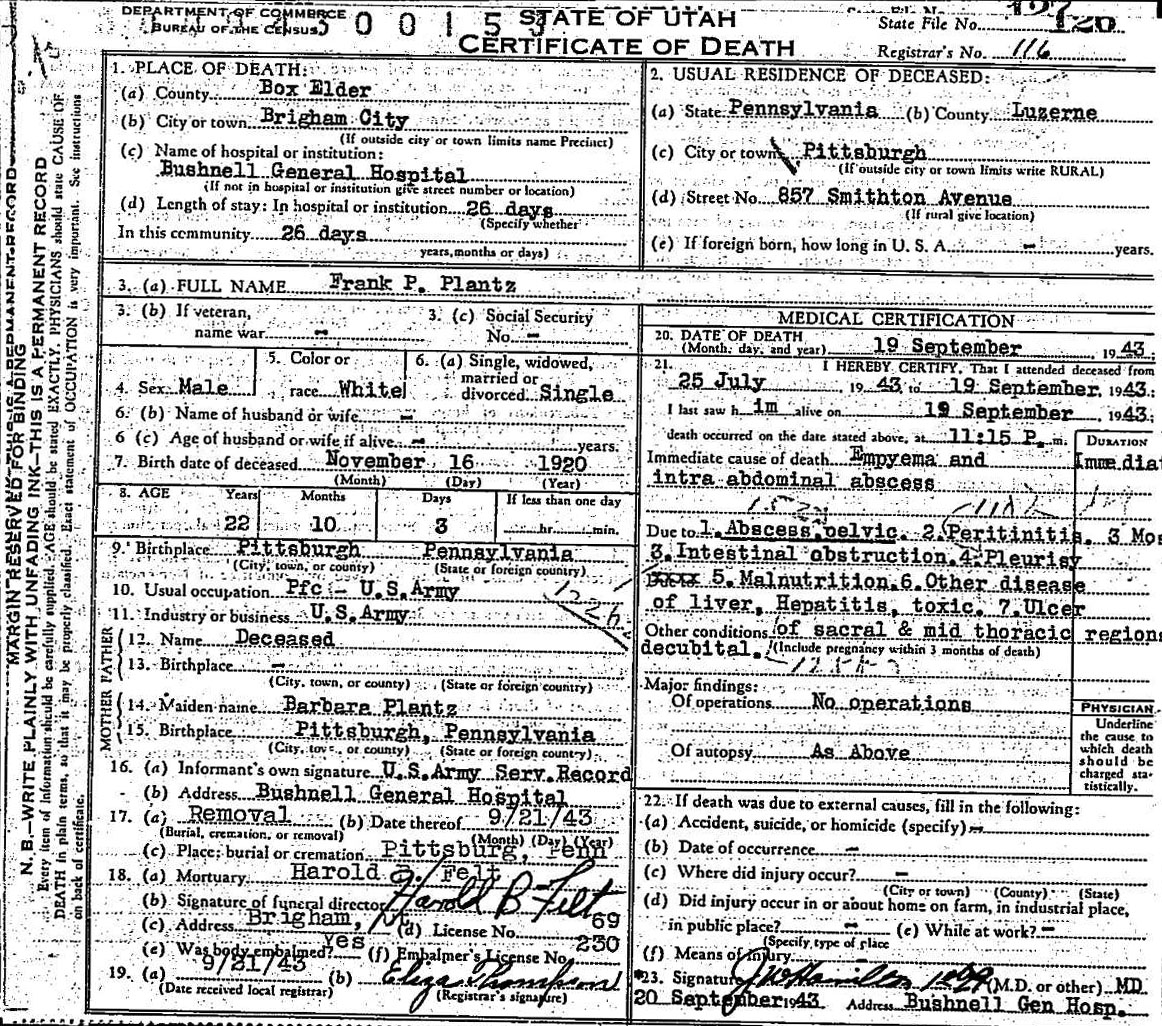 DEPARTMENT OF COMMERCE
BUREAU OF THE CENSUS
STATE OF UTAH
CERTIFICATE OF DEATH
State File No. 120
Registrar's No. 116
MARGIN RESERVED FOR BINDING
N. B.—WRITE PLAINLY WITH UNFADING INK—THIS IS A PERMANENT RECORD
Every item of information should be carefully supplied. AGE should be stated EXACTLY. PHYSICIANS should state CAUSE OF
DEATH in plain terms, so that it may be properly classified. Exact statement of OCCUPATION is very important. See instructions
on back of certificate.
1. PLACE OF DEATH:
(a) County Box Elder
(b) City or town Brigham City
(If outside city or town limits name Precinct)
(c) Name of hospital or institution:
Bushnell General Hospital
(If not in hospital or institution give street number or location)
(d) Length of stay: In hospital or institution 26 days
(Specify whether
In this community 26 days
years, months or days)
2. USUAL RESIDENCE OF DECEASED:
(a) State Pennsylvania (b) County Luzerne
(c) City or town Pittsburgh
(If outside city or town limits write RURAL)
(d) Street No. 857 Smithton Avenue
(If rural give location)
(e) If foreign born, how long in U. S. A. - years.
3. (a) FULL NAME Frank P. Plantz
3. (b) If veteran, name war -
3. (c) Social Security No. -
4. Sex Male
5. Color or race White
6. (a) Single, widowed, married or divorced Single
6. (b) Name of husband or wife -
6 (c) Age of husband or wife if alive - years.
7. Birth date of deceased November 16 1920
(Month) (Day) (Year)
8. AGE Years Months Days If less than one day
22 10 3 hr. min.
9. Birthplace Pittsburgh Pennsylvania
(City, town, or county) (State or foreign country)
10. Usual occupation Pfc - U.S.Army
11. Industry or business U.S.Army
FATHER
12. Name Deceased
13. Birthplace -
(City, town, or county) (State or foreign country)
MOTHER
14. Maiden name Barbara Plantz
15. Birthplace Pittsburgh, Pennsylvania
(City, town, or county) (State or foreign country)
16. (a) Informant's own signature U.S.Army Serv.Record
(b) Address Bushnell General Hospital
17. (a) Removal (b) Date thereof 9/21/43
(Burial, cremation, or removal) (Month) (Day) (Year)
(c) Place: burial or cremation Pittsburg, Penn
18. (a) Mortuary Harold B. Felt
(b) Signature of funeral director Harold B Felt
(c) Address Brigham, (d) License No. 69
(e) Was body embalmed? yes (f) Embalmer's License No. 230
19. (a) 9/21/43 (b) Eliza Thompson
(Date received local registrar) (Registrar's signature)
MEDICAL CERTIFICATION
20. DATE OF DEATH
(Month, day, and year) 19 September 1943;
21. I HEREBY CERTIFY, That I attended deceased from
25 July 1943 to 19 September, 1943;
I last saw him alive on 19 September 1943;
death occurred on the date stated above, at 11:15 P. m.
DURATION
Immediate cause of death Empyema and Immediat
intra abdominal abscess
Due to 1. Abscess pelvic. 2. Peritinitis. 3 Mos
3. Intestinal obstruction. 4. Pleurisy
xxxx 5. Malnutrition. 6. Other disease
of liver, Hepatitis, toxic. 7. Ulcer
Other conditions of sacral & mid thoracic regions
decubital. (Include pregnancy within 3 months of death)
Major findings:
Of operations No operations
Of autopsy As Above
PHYSICIAN
Underline
the cause to
which death
should be
charged sta-
tistically.
22. If death was due to external causes, fill in the following:
(a) Accident, suicide, or homicide (specify) -
(b) Date of occurrence -
(c) Where did injury occur? -
(City or town) (County) (State)
(d) Did injury occur in or about home on farm, in industrial place,
in public place? - (e) While at work? -
(Specify type of place
(f) Means of injury
23. Signature J W Hamilton (M.D. or other) MD
20 September 1943 Address Bushnell Gen Hosp.